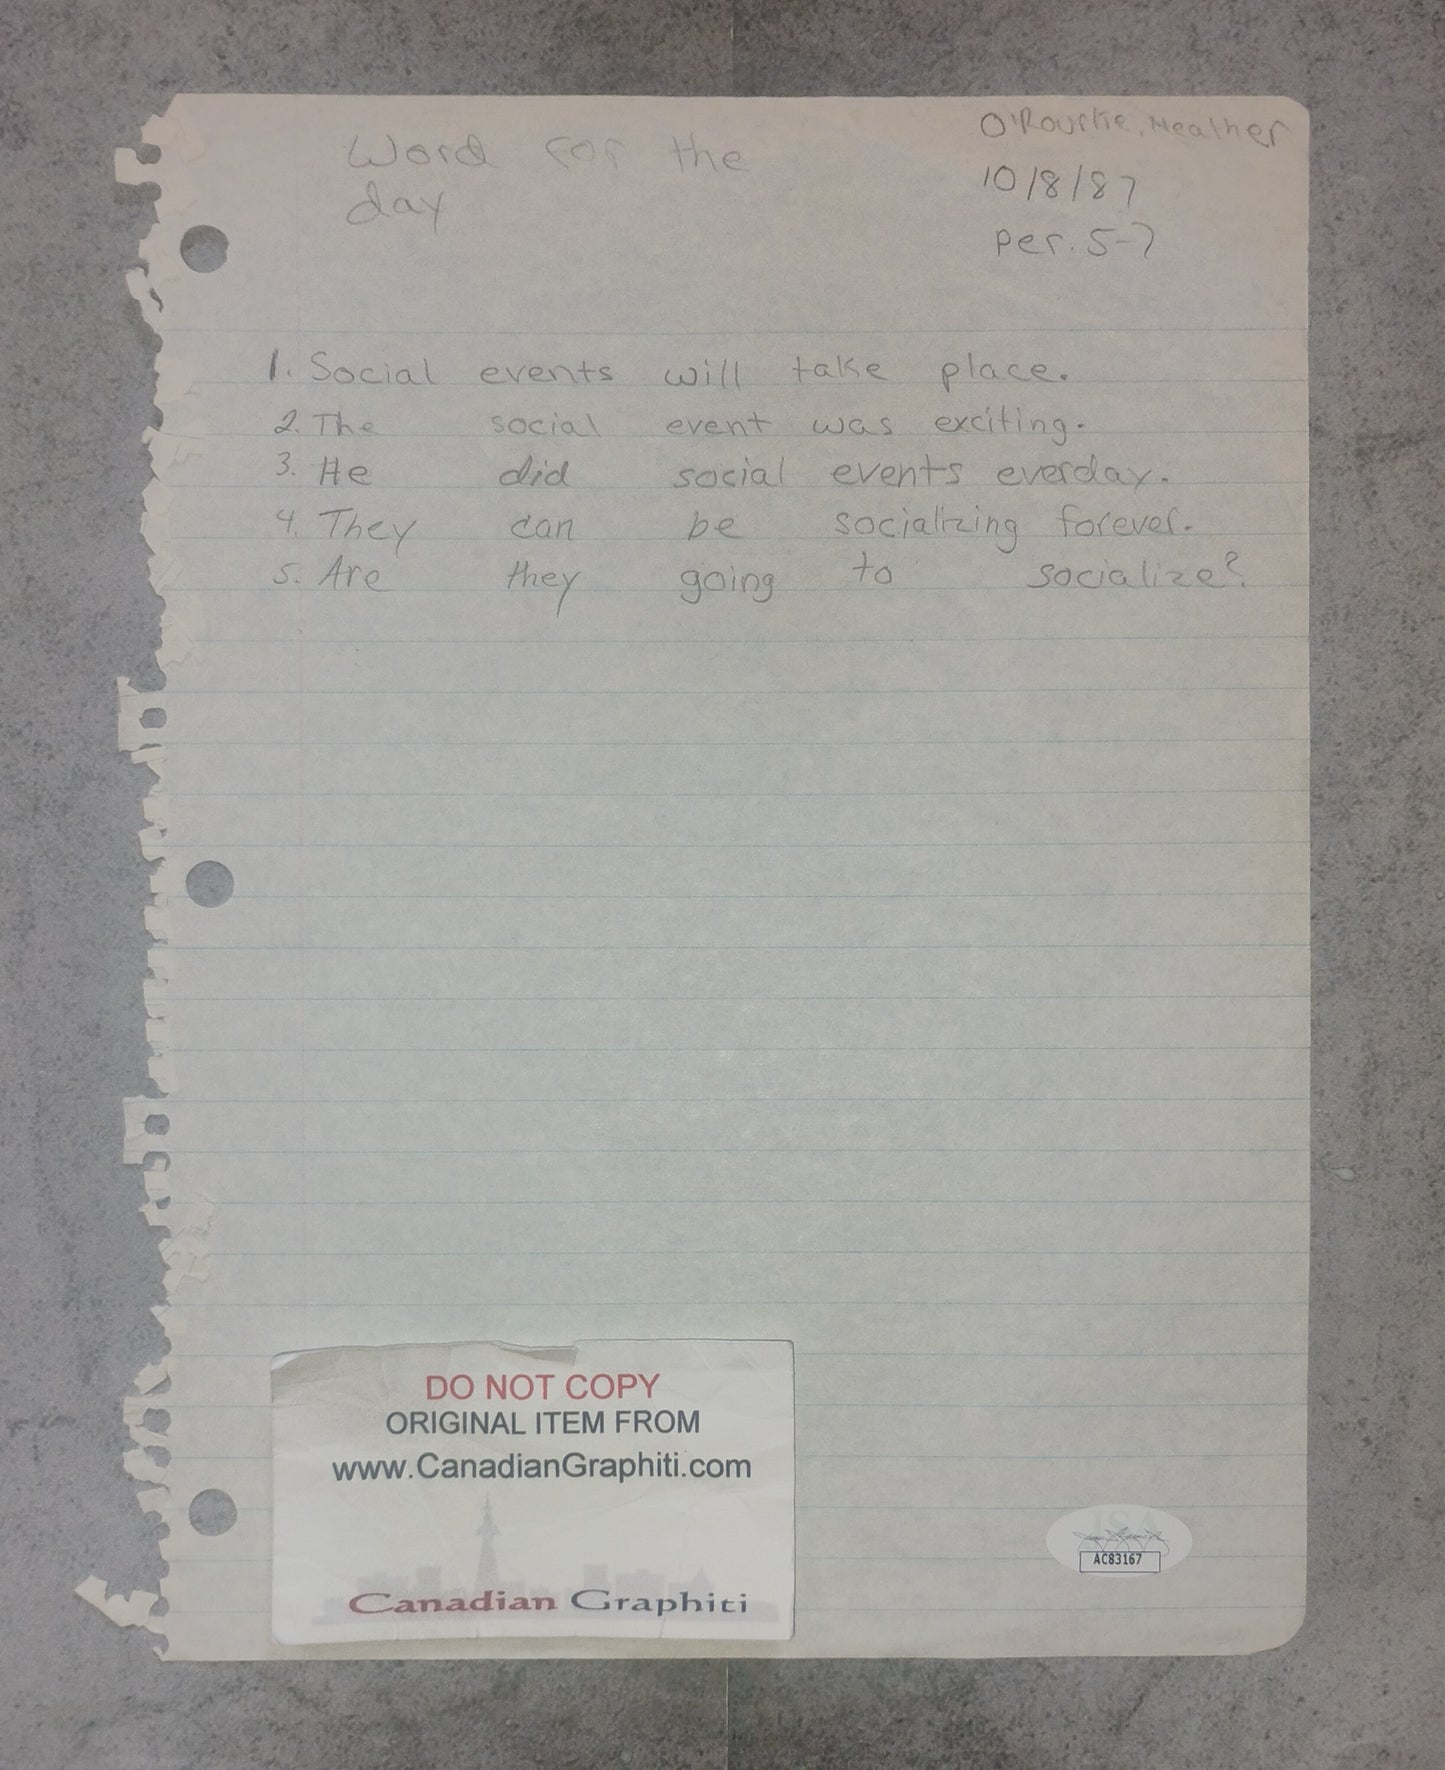 O'Rourke, Heather
Word for the
10/8/87
day
Per. 5-7
1. Social events will take place.
2. The social event was exciting.
3. He did social events everday.
4. They can be socializing forever.
5. Are they going to socialize?
DO NOT COPY
ORIGINAL ITEM FROM
www.CanadianGraphiti.com
Canadian Graphiti
JSA
AC83167